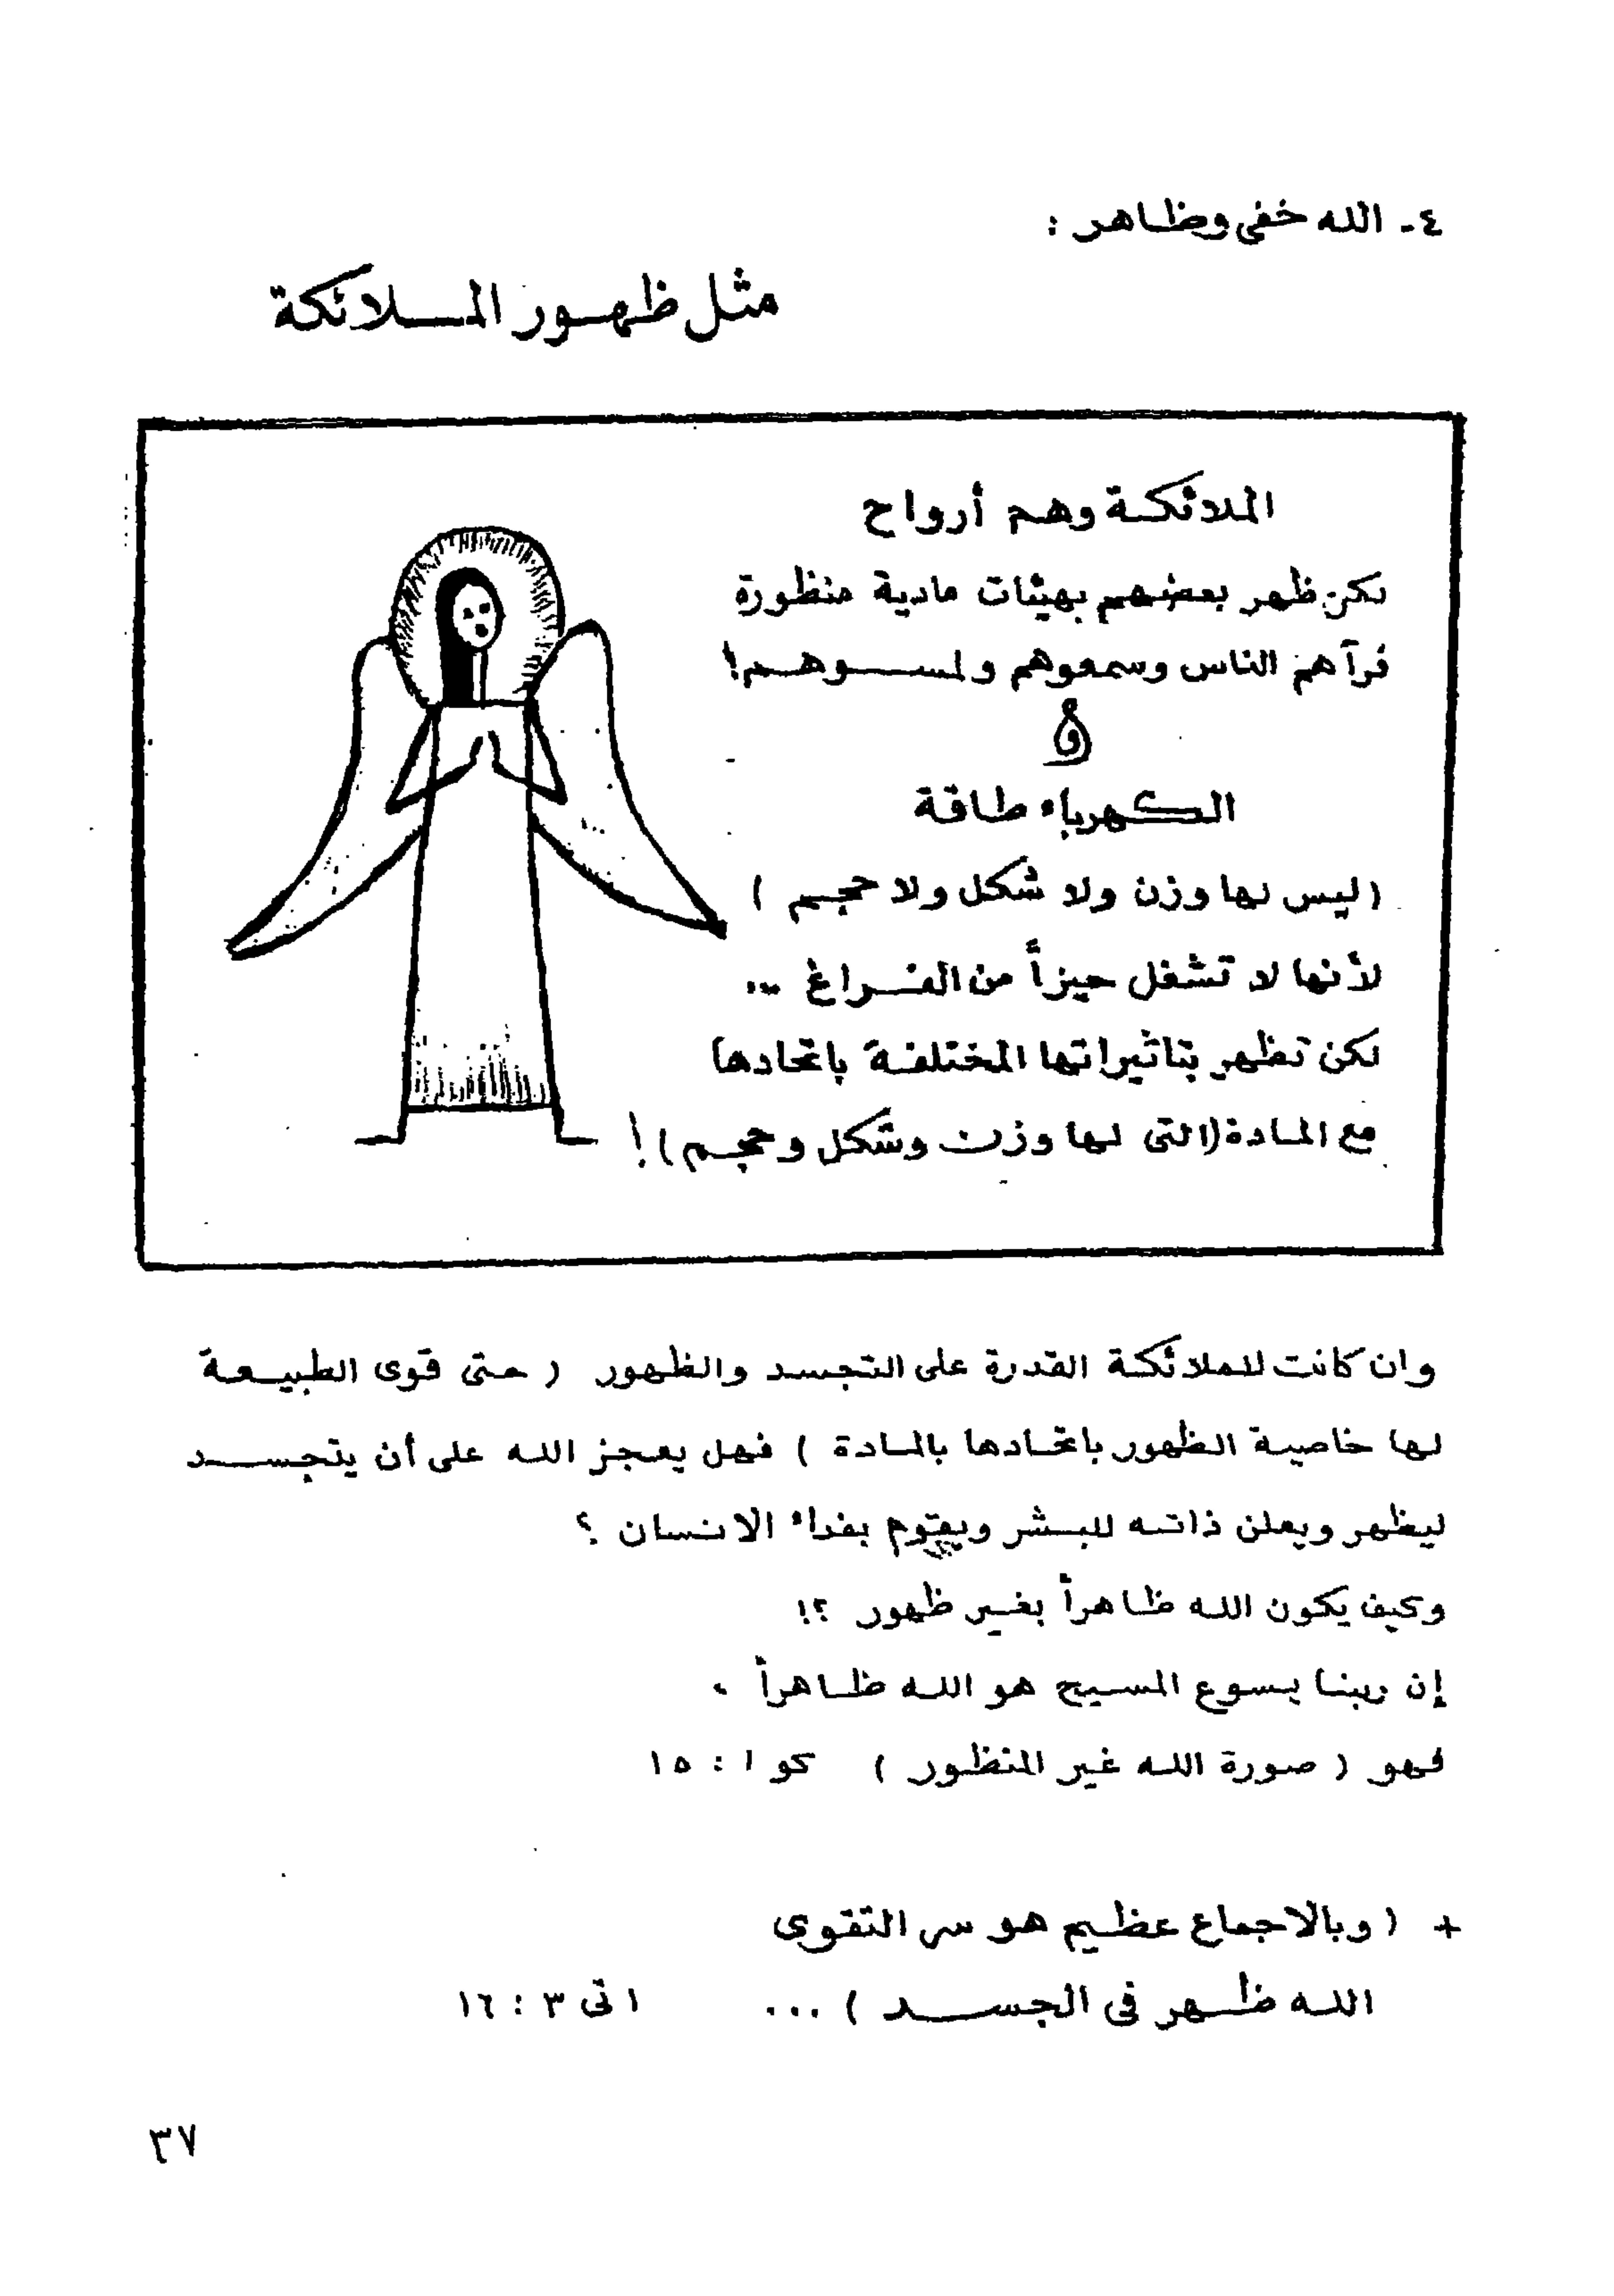 ٤- الله خفى وظاهر :
مثل ظهور الملائكة
الملائكة وهم أرواح
لكن ظهر بعضهم بهيئات مادية منظورة
فرآهم الناس وسمعوهم ولمسوهم!
و
الكهرباء طاقة
(ليس لها وزن ولا شكل ولا حجم )
لأنها لا تشغل حيزاً من الفراغ ...
لكن تظهر بتاثيراتها المختلفة باتحادها
مع المادة (التى لها وزن وشكل وحجم)!
وان كانت للملائكة القدرة على التجسد والظهور ( حتى قوى الطبيعة
لها خاصية الظهور باتحادها بالمادة ) فهل يعجز الله على أن يتجسد
ليظهر ويعلن ذاته للبشر ويقوم بفداء الانسان ؟
وكيف يكون الله ظاهراً بغير ظهور ؟!
إن ربنا يسوع المسيح هو الله ظاهراً ،
فهو ( صورة الله غير المنظور ) كو ١ : ١٥
+ ( وبالاجماع عظيم هو سر التقوى
الله ظهر فى الجسد ) ... ١ تى ٣ : ١٦
٣٧